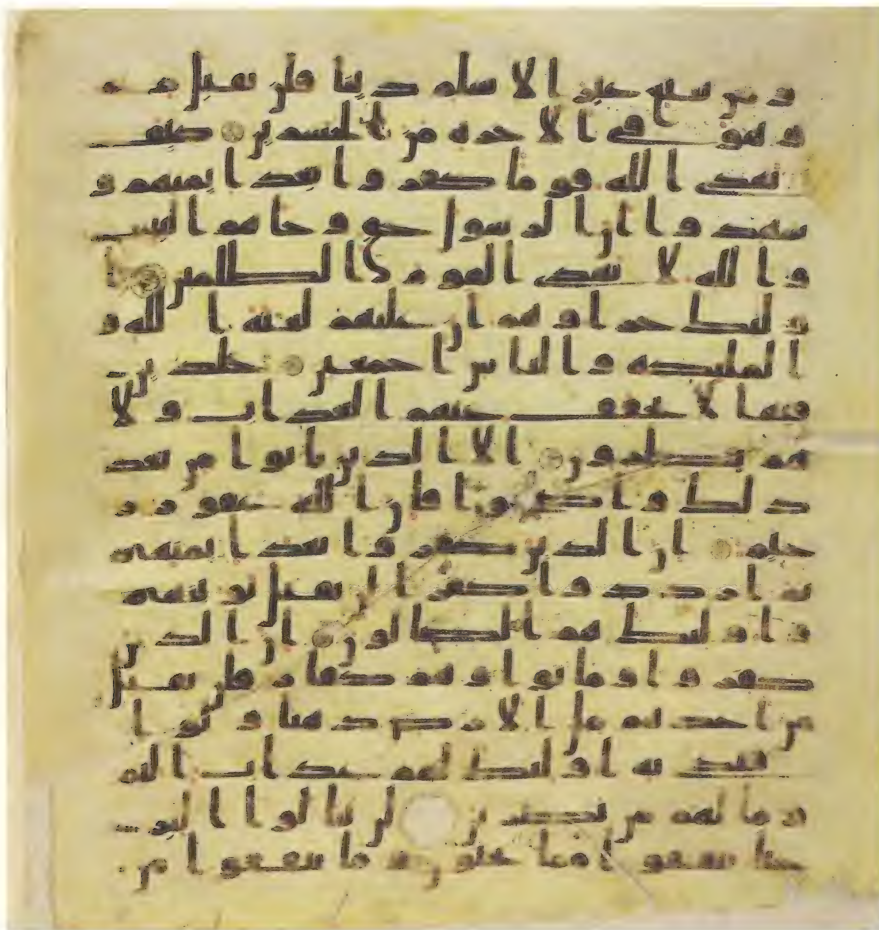 ومن يبتغ غير الاسلم دينا فلن يقبل منه
وهو في الاخرة من الخسرين كيف
يهدي الله قوما كفروا بعد ايمنهم و
شهدوا ان الرسول حق وجاهم البينت
والله لا يهدي القوم الظلمين ا
ولئك جزاوهم ان عليهم لعنة الله و
الملئكة والناس اجمعين خلدين
فيها لا يخفف عنهم العذاب ولا
هم ينظرون الا الذين تابوا من بعد
ذلك واصلحوا فان الله غفور ر
حيم ان الذين كفروا بعد ايمنهم
ثم ازددوا كفرا لن تقبل توبتهم
واولئك هم الضالون ان الذين
كفروا وماتوا وهم كفار فلن يقبل
من احدهم مل الارض ذهبا ولو ا
فتدى به اولئك لهم عذاب اليم
وما لهم من نصرين لن تنالوا البر
حتى تنفقوا مما تحبون وما تنفقوا من